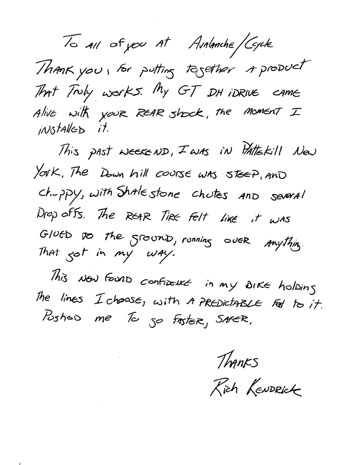 To All of you At Avalanche/Cycle
Thank you, for putting together A product
That Truly works. My GT DH iDRIVE CAME
Alive with your REAR shock, the moment I
installed it.
This past weekend, I was in Plattekill New
York, The Down hill course was steep, AND
choppy, with Shale stone chutes AND several
Drop offs. The REAR TIRE felt like it was
Glued to the ground, running over Anything
That got in my way.
This new found confidence in my BIKE holding
The lines I choose, with A PREDICTABLE Feel to it.
Pushed me To go faster, safer.
Thanks
Rich Kendrick